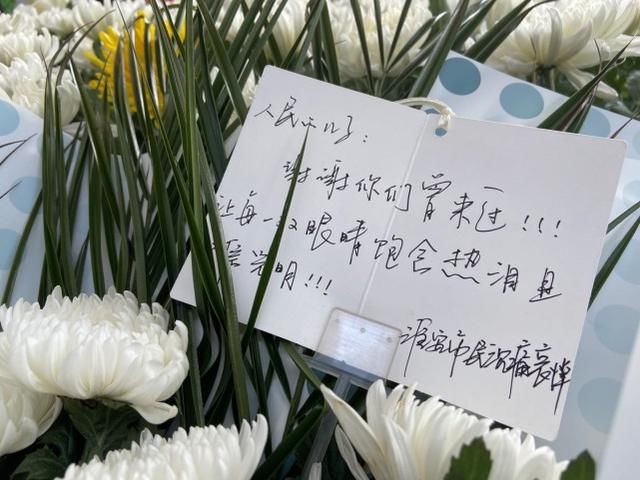 人民的儿子:
谢谢你们曾来过!!!
让每一双眼睛饱含热泪且
光明!!!
淮安市民沉痛哀悼